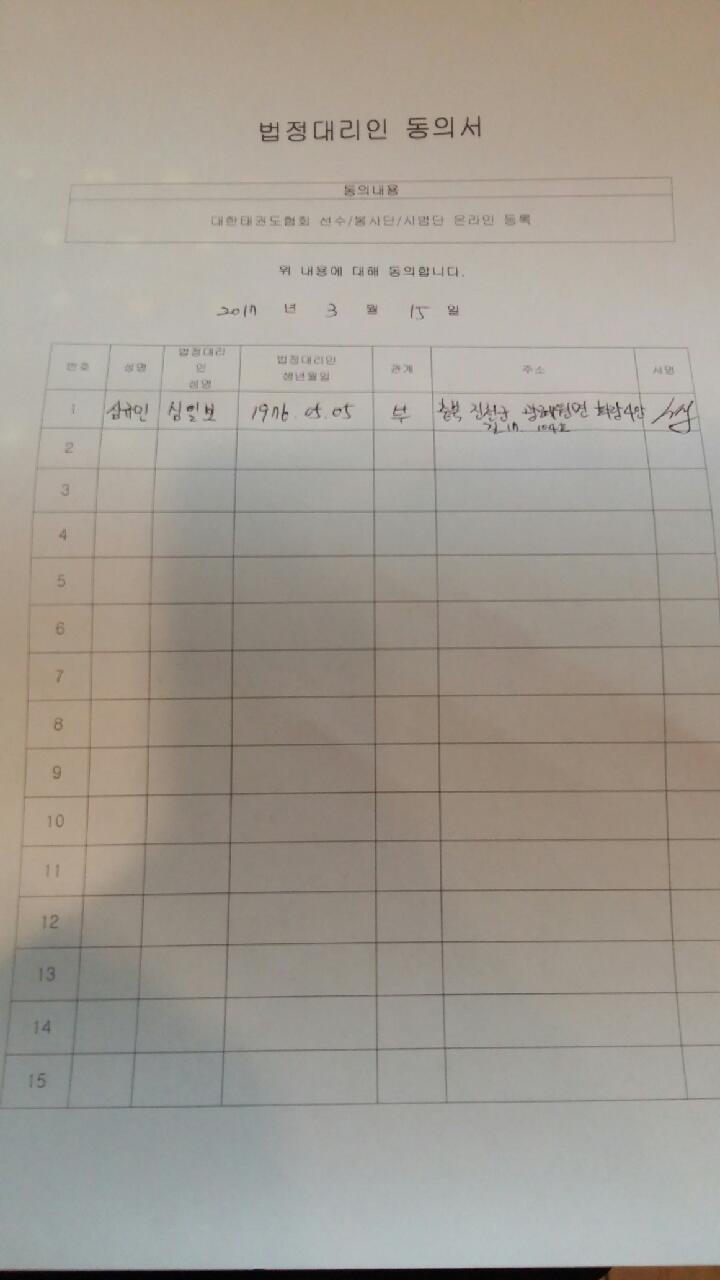 법정대리인 동의서
동의내용
대한태권도협회 선수/봉사단/시범단 온라인 등록
위 내용에 대해 동의합니다.
2017 년 3 월 15 일
번호 성명 법정대리인 성명 법정대리인 생년월일 관계 주소 서명
1 심규민 심일보 1976. 05. 05 부 충북 진천군 광혜원면 화랑4안
길 17. 104호
2
3
4
5
6
7
8
9
10
11
12
13
14
15